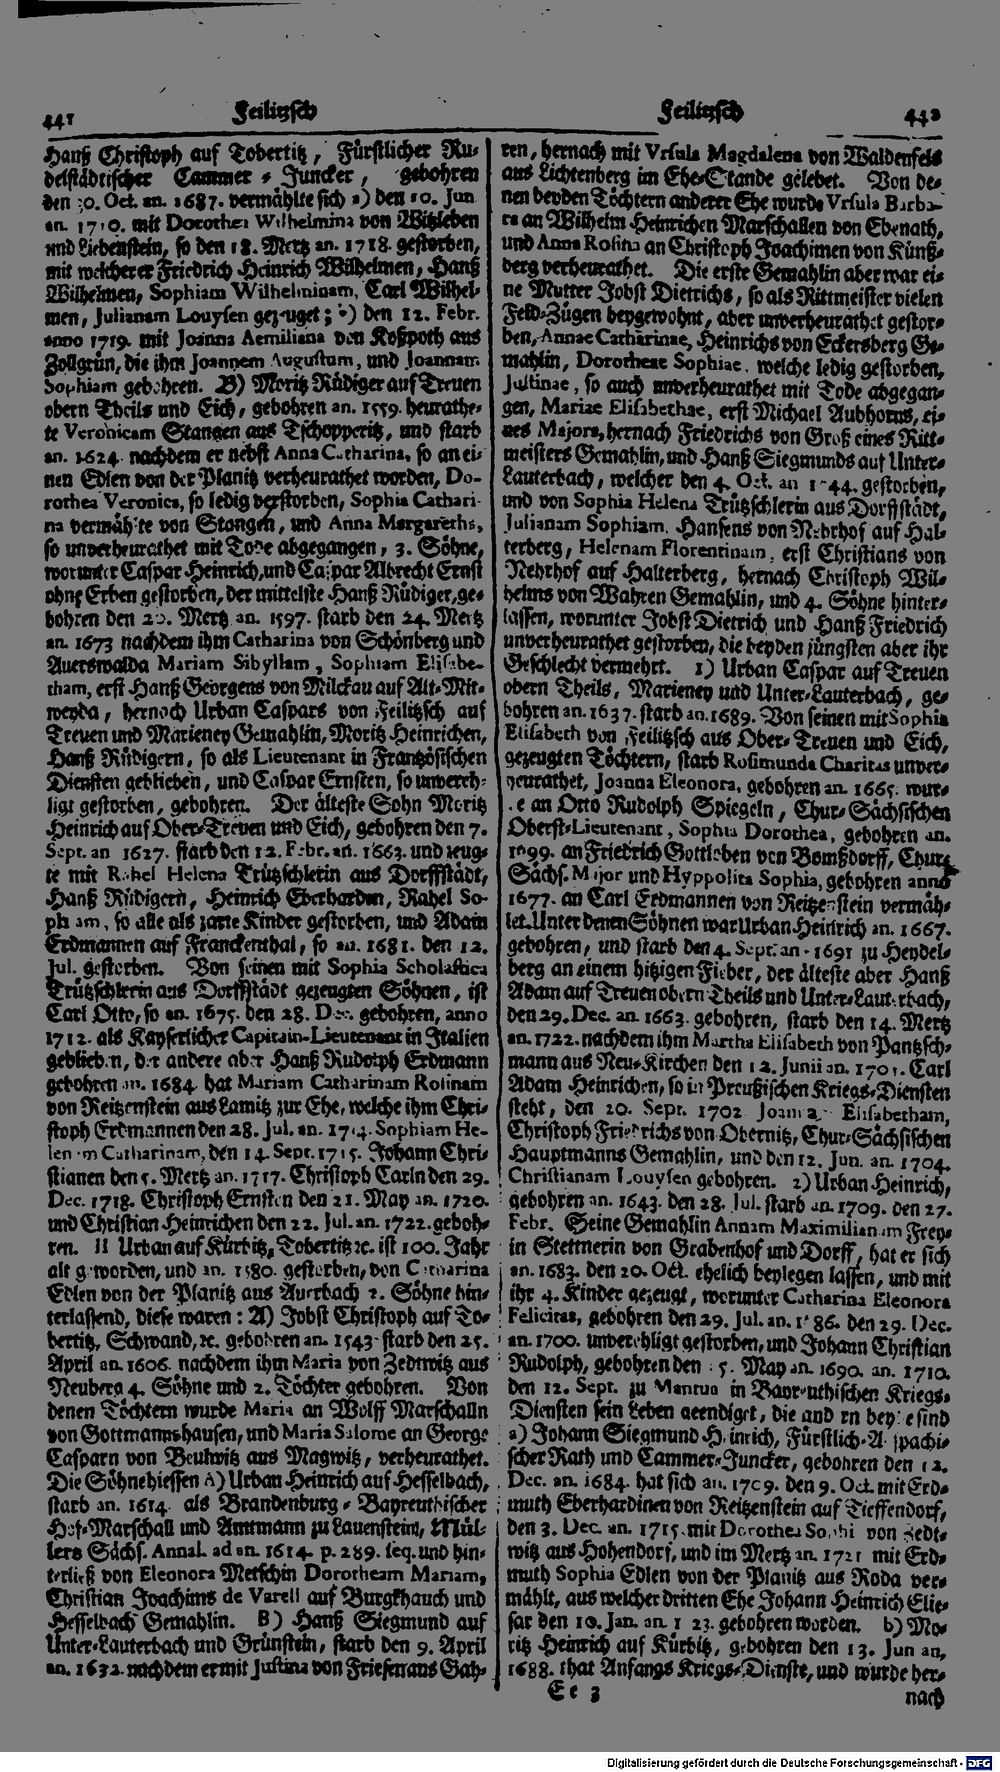 441 Feilitzsch
Feilitzsch 442
Hanß Christoph auf Tobertitz, Fürstlicher Ru-
delstädtischer Cammer-Juncker, gebohren
den 30. Oct. an. 1687. vermählte sich den 10. Jun
an. 1710. mit Dorothea Wilhelmina von Witzleben
und Liebenstein, so den 18. Mertz an. 1718. gestorben,
mit welcher er Friedrich Heinrich Wilhelmen, Hanß
Wilhelmen, Sophiam Wilhelminam, Carl Wilhel-
men, Julianam Louysen gezeuget; den 12. Febr.
anno 1719. mit Joanna Aemiliana von Koßpoth aus
Zollgrün, die ihm Joannem Augustum, und Joannam
Sophiam gebohren. B) Moritz Rüdiger auf Treuen
obern Theils und Eich, gebohren an. 1559. heurathe-
te Veronicam Stangen aus Tschopperitz, und starb
an. 1624. nachdem er nebst Anna Catharina, so an ei-
nen Edlen von der Planitz verheurathet worden, Do-
rothea Veronica, so ledig verstorben, Sophia Cathari-
na vermählte von Stangen, und Anna Margaretha,
so unverheurathet mit Tode abgegangen, 3. Söhne,
worunter Caspar Heinrich, und Caspar Albrecht Ernst
ohne Erben gestorben, der mittelste Hanß Rüdiger, ge-
bohren den 20. Mertz an. 1597. starb den 24. Mertz
an. 1673 nachdem ihm Catharina von Schönberg und
Auerswalda Mariam Sibyllam, Sophiam Elisabe-
tham, erst Hanß Georgens von Milckau auf Alt-Mit-
weyda, hernach Urban Caspars von Feilitzsch auf
Treuen und Marieney Gemahlin, Moritz Heinrichen,
Hanß Rüdigern, so als Lieutenant in Frantzösischen
Diensten geblieben, und Caspar Ernsten, so unvereh-
ligt gestorben, gebohren. Der älteste Sohn Moritz
Heinrich auf Ober-Treuen und Eich, gebohren den 7.
Sept. an 1627. starb den 12. Febr. an. 1663. und zeug-
te mit Rahel Helena Trützschlerin aus Dorffstädt,
Hanß Rüdigern, Heinrich Eberharden, Rahel So-
phiam, so alle als zarte Kinder gestorben, und Adam
Erdmannen auf Franckenthal, so an. 1681. den 12.
Jul. gestorben. Von seinen mit Sophia Scholastica
Trützschlerin aus Dorffstädt gezeugten Söhnen, ist
Carl Otto, so an. 1675. den 28. Dec. gebohren, anno
1712. als Kayserlicher Capitain-Lieutenant in Italien
geblieben, der andere aber Hanß Rudolph Erdmann
gebohren an. 1684 hat Mariam Catharinam Rosinam
von Reitzenstein aus Lamitz zur Ehe, welche ihm Chri-
stoph Erdmannen den 28. Jul. an. 1714. Sophiam He-
lenam Catharinam, den 14. Sept. 1715. Johann Chri-
stianen den 5. Mertz an. 1717. Christoph Carln den 29.
Dec. 1718. Christoph Ernsten den 21. May an. 1720.
und Christian Heinrichen den 22. Jul. an. 1722. geboh-
ren. II Urban auf Kürbitz, Tobertitz ꝛc. ist 100. Jahr
alt geworden, und an. 1580. gestorben, von Catharina
Edlen von der Planitz aus Auerbach 2. Söhne hin-
terlassend, diese waren: A) Jobst Christoph auf To-
bertitz, Schwand, ꝛc. gebohren an. 1543 starb den 25.
April an. 1606. nachdem ihm Maria von Zedtwitz aus
Neuberg 4. Söhne und 2. Töchter gebohren. Von
denen Töchtern wurde Maria an Wolff Marschalln
von Gottmannshausen, und Maria Salome an George
Casparn von Beulwitz aus Magwitz, verheurathet.
Die Söhne hiessen A) Urban Heinrich auf Hesselbach,
starb an. 1614. als Brandenburg-Bayreuthischer
Hof-Marschall und Amtmann zu Lauenstein, Mül-
lers Sächs. Annal. ad an. 1614. p. 289. seq. und hin-
terließ von Eleonora Metschin Dorotheam Mariam,
Christian Joachims de Varell auf Burgkhauch und
Hesselbach Gemahlin. B) Hanß Siegmund auf
Unter-Lauterbach und Grünstein, starb den 9. April
an. 1632. nachdem er mit Justina von Friesen aus Gah-
ren, hernach mit Vrsula Magdalena von Waldenfels
aus Lichtenberg im Ehe-Stande gelebet. Von de-
nen beyden Töchtern anderer Ehe wurde Vrsula Barba-
ra an Wilhelm Heinrichen Marschallen von Ebenath,
und Anna Rosina an Christoph Joachimen von Künß-
berg verheurathet. Die erste Gemahlin aber war ei-
ne Mutter Jobst Dietrichs, so als Rittmeister vielen
Feld-Zügen beygewohnt, aber unverheurathet gestor-
ben, Annae Catharinae, Heinrichs von Eckersberg Ge-
mahlin, Dorotheae Sophiae, welche ledig gestorben,
Justinae, so auch unverheurathet mit Tode abgegan-
gen, Mariae Elisabethae, erst Michael Aubhorns, ei-
nes Majors, hernach Friedrichs von Groß eines Ritt-
meisters Gemahlin, und Hanß Siegmunds auf Unter-
Lauterbach, welcher den 4. Oct. an gestorben,
und von Sophia Helena Trützschlerin aus Dorffstädt,
Julianam Sophiam, Hansens von Nehrhof auf Hal-
terberg, Helenam Florentinam, erst Christians von
Nehrhof auf Halterberg, hernach Christoph Wil-
helms von Wahren Gemahlin, und 4. Söhne hinter-
lassen, worunter Jobst Dietrich und Hanß Friedrich
unverheurathet gestorben, die beyden jüngsten aber ihr
Geschlecht vermehrt. 1) Urban Caspar auf Treuen
obern Theils, Marieney und Unter-Lauterbach, ge-
bohren an. 1637. starb an. 1689. Von seinen mit Sophia
Elisabeth von Feilitzsch aus Ober-Treuen und Eich,
gezeugten Töchtern, starb Rosimunda Charitas unver-
heurathet, Joanna Eleonora, gebohren an. 1665. wur-
de an Otto Rudolph Spiegeln, Chur-Sächsischen
Oberst-Lieutenant, Sophia Dorothea, gebohren an.
an Friedrich Gottloben von Bomßdorff, Chur-
Sächs. Major und Hyppolita Sophia, gebohren anno
1677. an Carl Erdmannen von Reitzenstein vermäh-
let. Unter denen Söhnen war Urban Heinrich an. 1667.
gebohren, und starb den 4. Sept. an. 1691 zu Heydel-
berg an einem hitzigen Fieber, der älteste aber Hanß
Adam auf Treuen obern Theils und Unter-Lauterbach,
den 29. Dec. an. 1663. gebohren, starb den 14. Mertz
an. 1722. nachdem ihm Martha Elisabeth von Pantzsch-
mann aus Neu-Kirchen den 12. Junii an. 1701. Carl
Adam Heinrichen, so in Preußischen Kriegs-Diensten
steht, den 20. Sept. 1702 Elisabetham,
Christoph Friedrichs von Obernitz, Chur-Sächsischen
Hauptmanns Gemahlin, und den 12. Jun. an. 1704.
Christianam Louysen gebohren. 2) Urban Heinrich,
gebohren an. 1643. den 28. Jul. starb an. 1709. den 27.
Febr. Seine Gemahlin Annam Maximilianam Frey-
in Stettnerin von Grabenhof und Dorff, hat er sich
an. 1683. den 20. Oct. ehelich beylegen lassen, und mit
ihr 4. Kinder gezeugt, worunter Catharina Eleonora
Felicitas, gebohren den 29. Jul. an. den 29. Dec.
an. 1700. unverehligt gestorben, und Johann Christian
Rudolph, gebohren den May an. 1690. an. 1710.
den 12. Sept. zu Mantua in Bayreuthischen Kriegs-
Diensten sein Leben geendiget, die andern beyde sind
a) Johann Siegmund Heinrich, Fürstlich-Anspachi-
scher Rath und Cammer-Juncker, gebohren den 12.
Dec. an. 1684. hat sich an. 1709. den 9. Oct. mit Erd-
muth Eberhardinen von Reitzenstein auf Tieffendorf,
den 3. Dec. an. 1715. mit Dorothea Sophia von Zedt-
witz aus Hohendorf, und im Mertz an. 1721 mit Erd-
muth Sophia Edlen von der Planitz aus Roda ver-
mählt, aus welcher dritten Ehe Johann Heinrich Elie-
sar den 10. Jan. an. gebohren worden. b) Mo-
ritz Heinrich auf Kürbitz, gebohren den 13. Jun an.
1688. that Anfangs Kriegs-Dienste, und wurde her-
Ee 3
nach
Digitalisierung gefördert durch die Deutsche Forschungsgemeinschaft - DFG